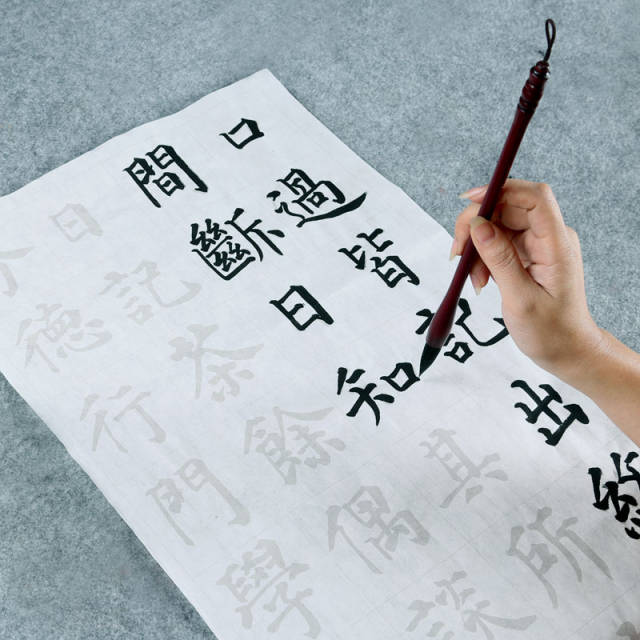 口過皆記出
間斷日知具所
日記泰餘偶
德行門學